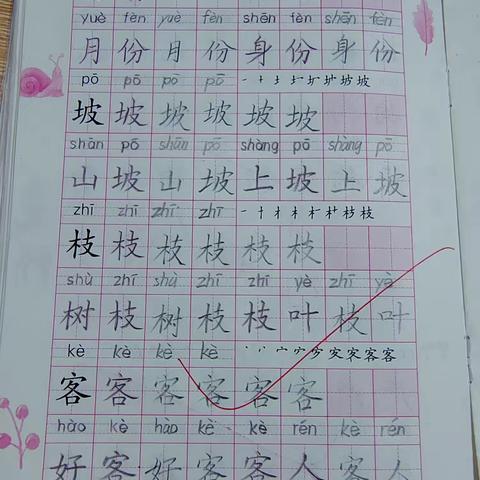 yuè fèn yuè fèn shēn fèn shēn fèn
月份月份身份身份
pō pō pō pō
坡坡坡坡坡坡
shān pō shān pō shàng pō shàng pō
山坡山坡上坡上坡
zhī zhī zhī zhī
枝枝枝枝枝枝
shù zhī shù zhī zhī yè zhī yè
树枝树枝枝叶枝叶
kè kè kè kè
客客客客客客
hào kè hào kè kè rén kè rén
好客好客客人客人